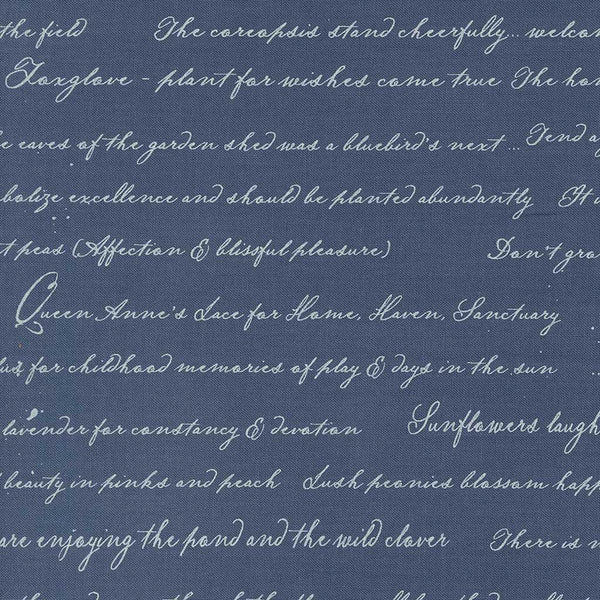 the field The coreopsis stand cheerfully... welcom
Foxglove - plant for wishes come true The hon
e eaves of the garden shed was a bluebird's next... Tend a
bolize excellence and should be planted abundantly It
t peas (Affection & blissful pleasure) Don't gro
Queen Anne's Lace for Home, Haven, Sanctuary
for childhood memories of play & days in the sun
lavender for constancy & devotion Sunflowers laugh
beauty in pinks and peach Lush peonies blossom happ
are enjoying the pond and the wild clover There is n